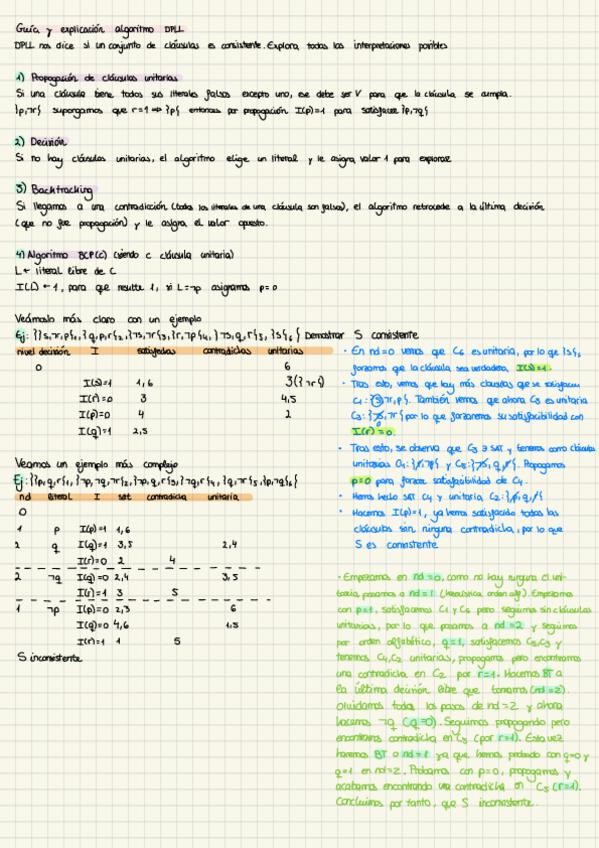 Guía y explicación algoritmo DPLL
DPLL nos dice si un conjunto de cláusulas es consistente. Explora todas las interpretaciones posibles
1) Propagación de cláusulas unitarias
Si una cláusula tiene todos sus literales falsos excepto uno, ese debe ser V para que la cláusula se cumpla.
}p,¬r{ supongamos que r=1 ⇒ }p{ entonces por propagación I(p)=1 para satisfacer }p,¬q{
2) Decisión
Si no hay cláusulas unitarias, el algoritmo elige un literal y le asigna valor 1 para explorar
3) Backtracking
Si llegamos a una contradicción (todos los literales de una cláusula son falsos), el algoritmo retrocede a la última decisión
(que no fue propagación) y le asigna el valor opuesto.
4) Algoritmo BCP(C) (siendo c cláusula unitaria)
L ← literal libre de C
I(L) ← 1, para que resulte 1, si L=¬p asignamos p=0
Veámoslo más claro con un ejemplo
Ej: }}s,¬r,p{₁,}q,p,r{₂,}¬s,¬r{₃,}r,¬p{₄,}¬s,q,r{₅,}s{₆{ Demostrar S consistente
nivel decisión I satisfechas contradichas unitarias
0 6
I(s)=1 1,6 3(}¬r{)
I(r)=0 3 4,5
I(p)=0 4 2
I(q)=1 2,5
· En nd=0 vemos que C₆ es unitaria, por lo que }s{,
forzamos que la cláusula sea verdadera, I(s)=1.
· Tras esto, vemos que hay más cláusulas que se satisfacen
C₁:}s,¬r,p{. También vemos que ahora C₃ es unitaria
C₃:}¬s,¬r{ por lo que forzaremos su satisfacibilidad con
I(r)=0.
· Tras esto, se observa que C₃ SAT y tenemos como cláusulas
unitarias C₄:}r,¬p{ y C₅:}¬s,q,r{. Propagamos
p=0 para forzar satisfacibilidad de C₄.
· Hemos hecho SAT C₄ y unitaria C₂:}q,p,r{
· Hacemos I(q)=1, ya hemos satisfecho todas las
cláusulas sin ninguna contradicha, por lo que
S es consistente
Veamos un ejemplo más complejo
nd literal I sat contradicha unitaria
0
1 p I(p)=1 1,6
2 q I(q)=1 3,5 2,4
I(r)=0 2 4
2 ¬q I(q)=0 2,4 3,5
I(r)=1 3 5
1 ¬p I(p)=0 2,3 6
I(q)=0 4,6 1,5
I(r)=1 1 5
S inconsistente
· Empezamos en nd=0, como no hay ninguna cl uni-
taria, pasamos a nd=1 (heurística orden alf). Empezamos
con p=1, satisfacemos C₁ y C₆ pero seguimos sin cláusulas
unitarias, por lo que pasamos a nd=2 y seguimos
por orden alfabético, q=1, satisfacemos C₅,C₃ y
tenemos C₄,C₂ unitarias, propagamos pero encontramos
una contradicha en C₂ por r=1. Hacemos BT a
la última decisión libre que tomamos (nd=2).
Olvidamos todos los pasos de nd=2 y ahora
hacemos ¬q (q=0). Seguimos propagando pero
encontramos contradicha en C₅ (por r=1). Esta vez
hacemos BT a nd=1 ya que hemos probado con q=0 y
q=1 en nd=2. Probamos con p=0, propagamos y
acabamos encontrando una contradicha en C₅ (r=1).
Concluimos por tanto, que S inconsistente.